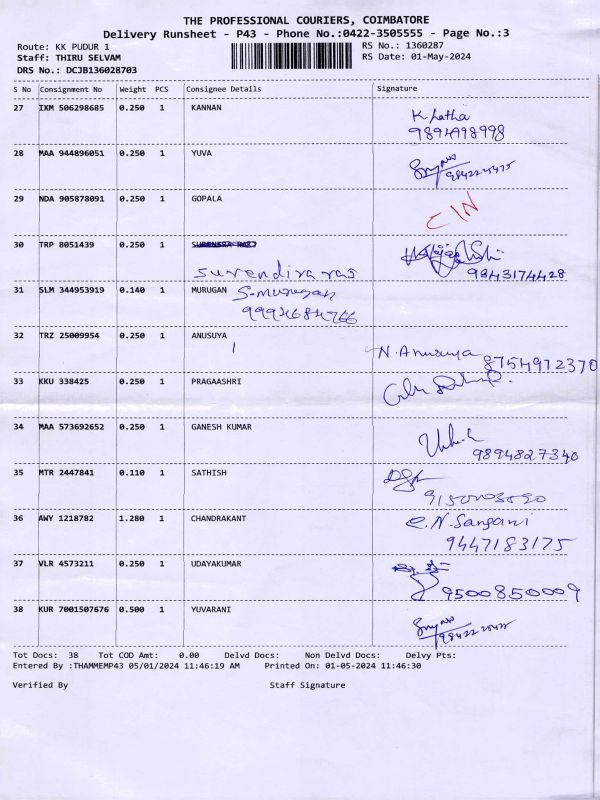 THE PROFESSIONAL COURIERS, COIMBATORE
Delivery Runsheet - P43 - Phone No.:0422-3505555 - Page No.:3
Route: KK PUDUR 1
RS No.: 1360287
Staff: THIRU SELVAM
RS Date: 01-May-2024
DRS No.: DCJB136028703
S No Consignment No Weight PCS Consignee Details Signature
27 IXM 506298685 0.250 1 KANNAN
K. Latha
9894998998
28 MAA 944896051 0.250 1 YUVA
29 NDA 905878091 0.250 1 GOPALA
CIN
30 TRP 8051439 0.250 1
surendiraras
9843174428
31 SLM 344953919 0.140 1 MURUGAN S.murugan
32 TRZ 25009954 0.250 1 ANUSUYA
N. Anusuya 8754972370
33 KKU 338425 0.250 1 PRAGAASHRI
34 MAA 573692652 0.250 1 GANESH KUMAR
9894827340
35 MTR 2447841 0.110 1 SATHISH
36 AWY 1218782 1.280 1 CHANDRAKANT
C.N. Sangani
9447183175
37 VLR 4573211 0.250 1 UDAYAKUMAR
9500850009
38 KUR 7001507676 0.500 1 YUVARANI
Tot Docs: 38 Tot COD Amt: 0.00 Delvd Docs: Non Delvd Docs: Delvy Pts:
Entered By :THAMMEMP43 05/01/2024 11:46:19 AM Printed On: 01-05-2024 11:46:30
Verified By Staff Signature